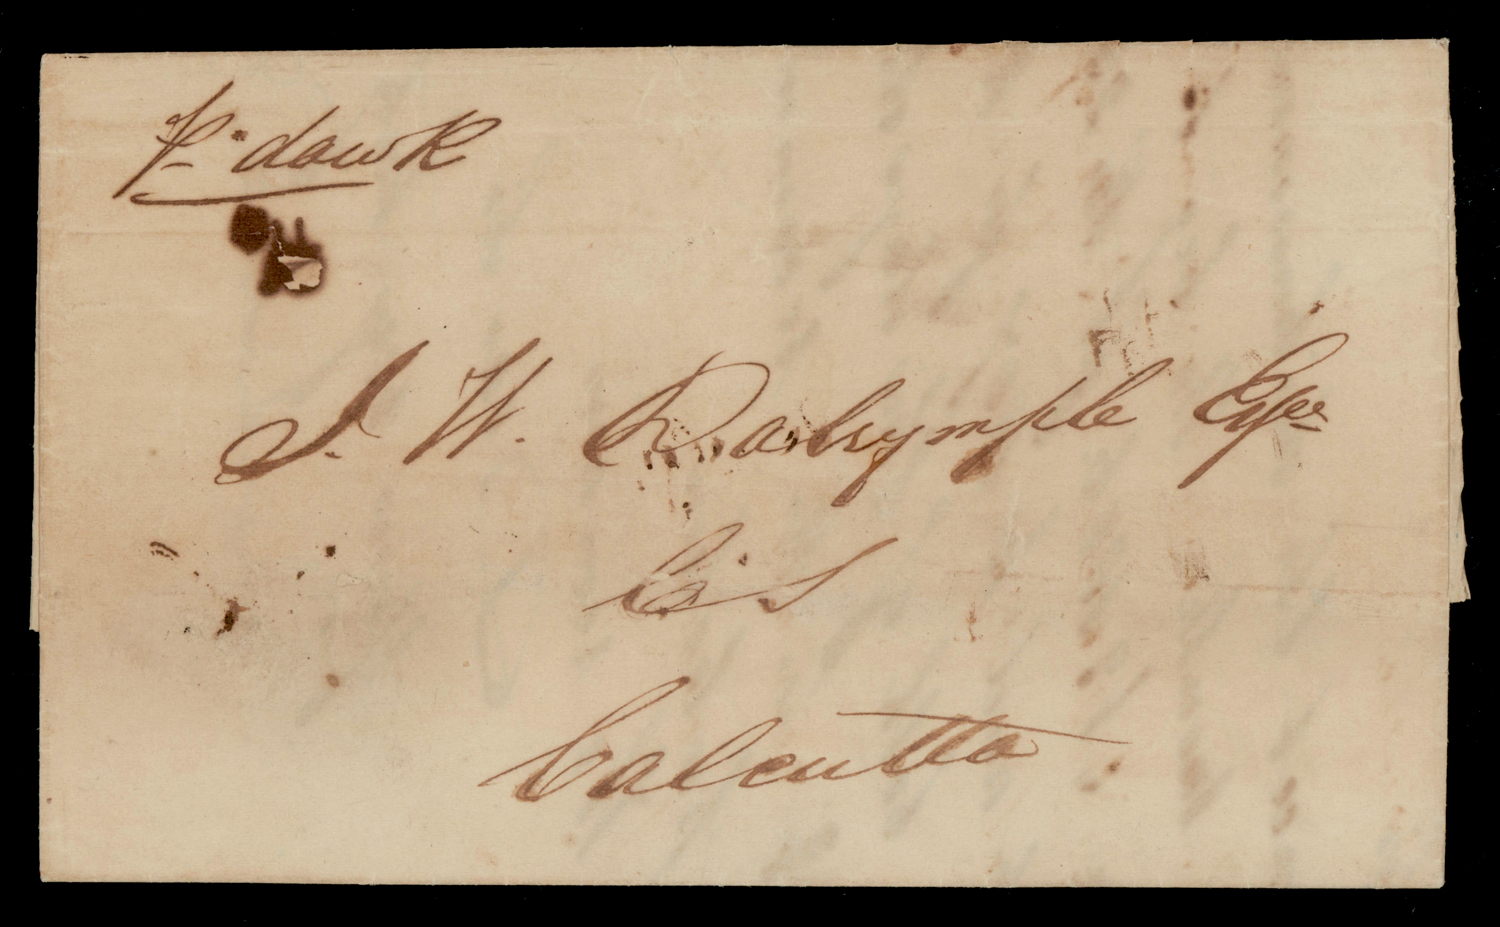 p. dawk
J. W. Dalrymple Esqre
C. S
Calcutta